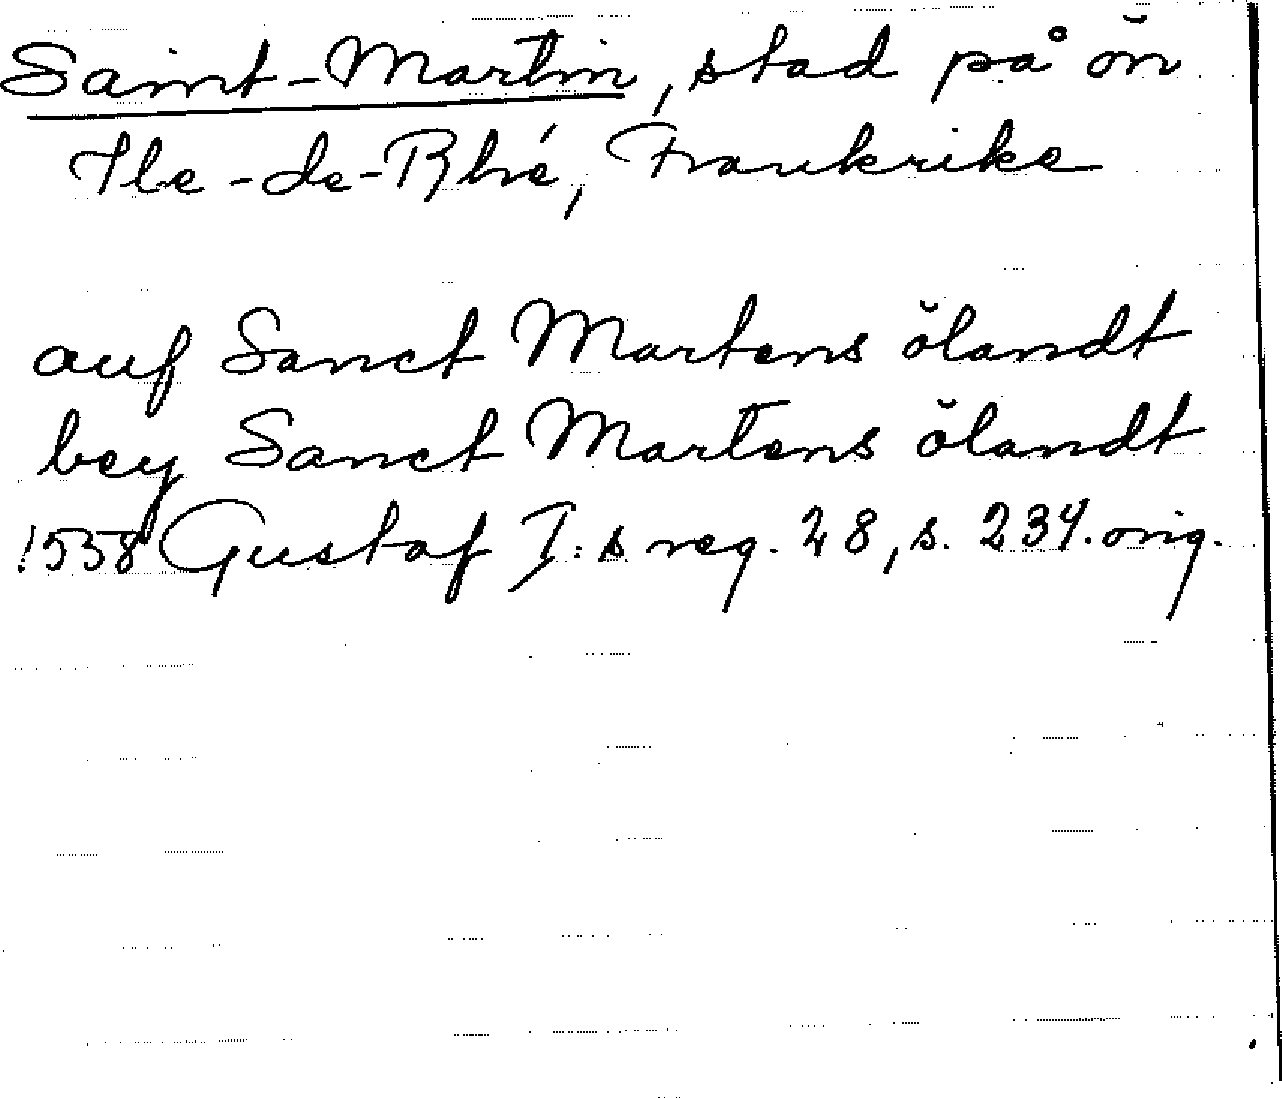 Saint-Martin, stad på ön
Ile-de-Rhé, Frankrike
auf Sanct Martens ölandt
bey Sanct Martens ölandt
1558 Gustaf I:s reg. 28, s. 234. orig.